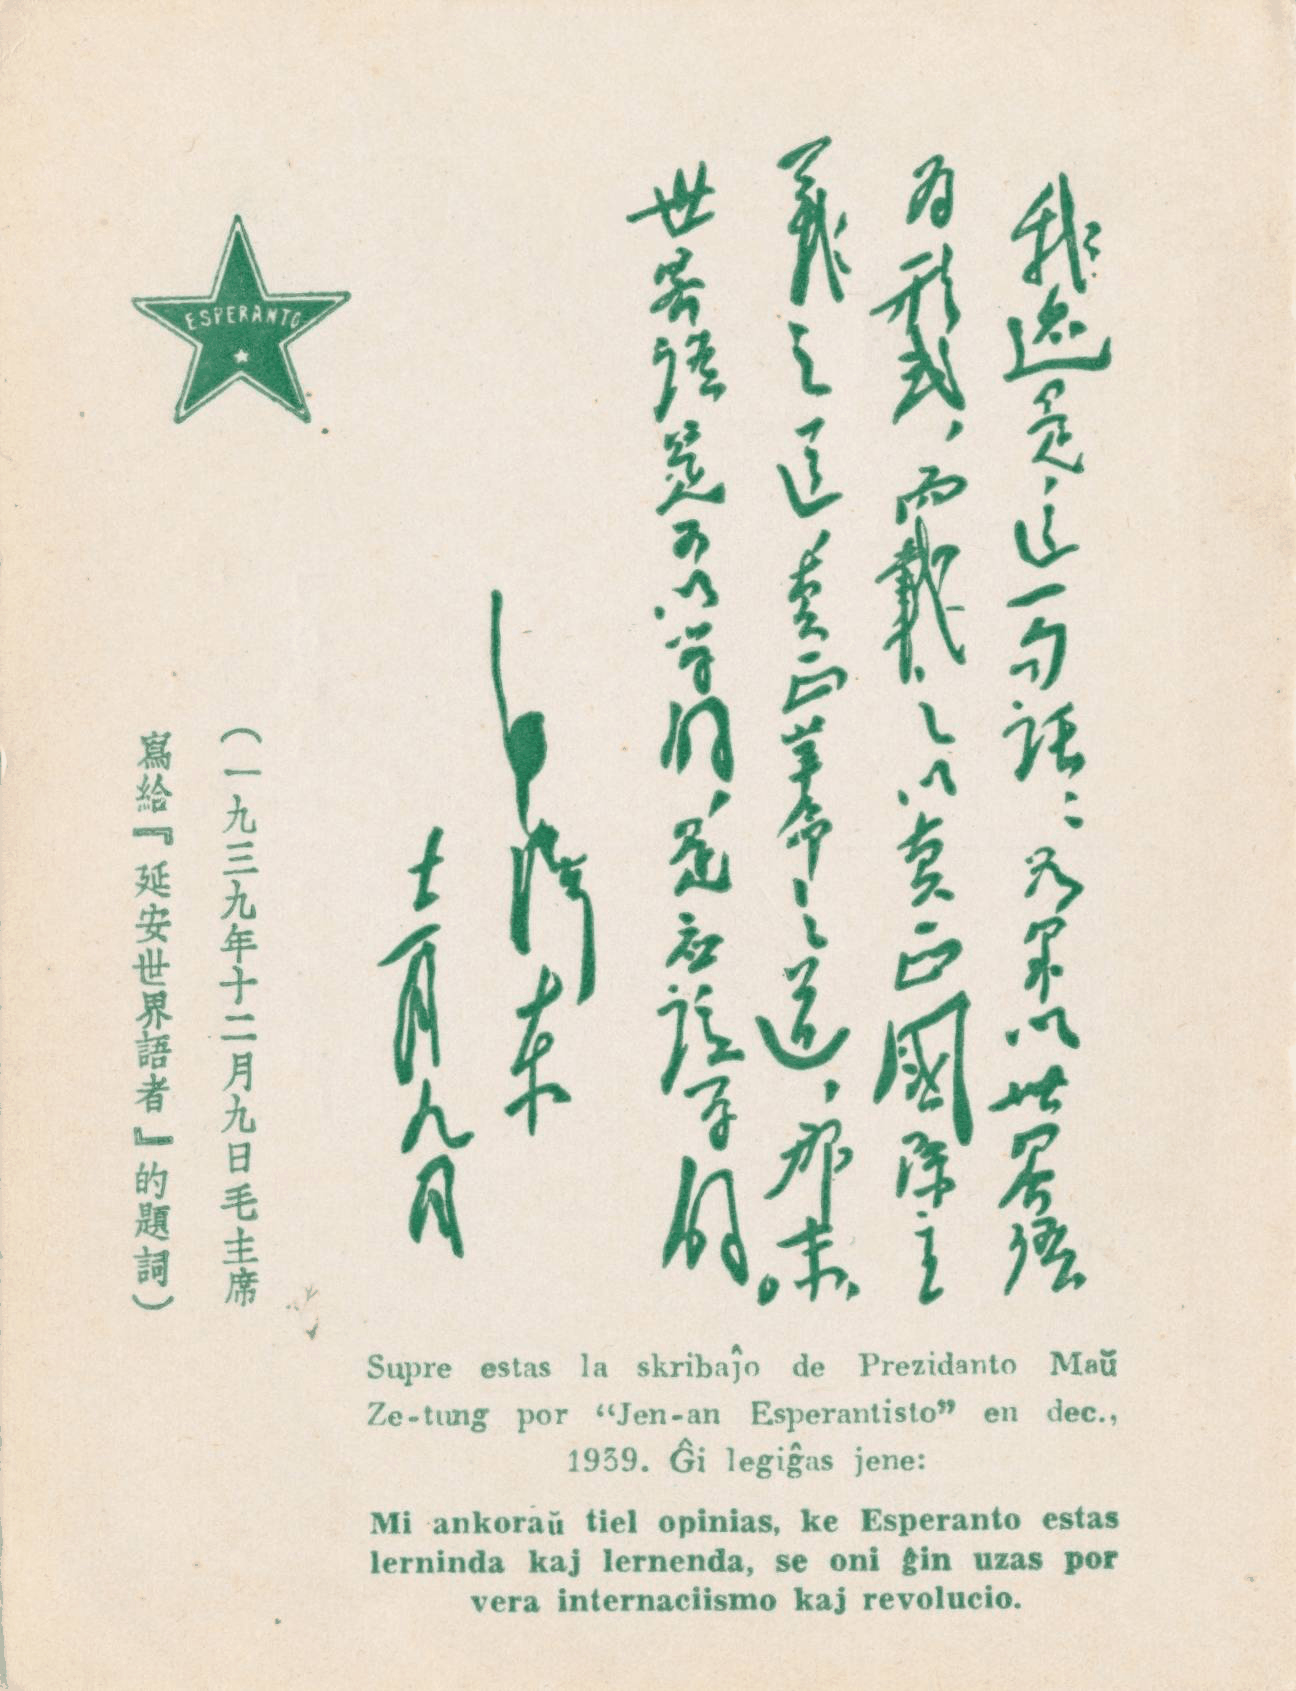 我還是這一句話：如果以世界語
為形式，而載之以真正國際主
義之道，真正革命之道，那末，
世界語是可以学的，是应該学的。
毛澤東
十二月九日
ESPERANTO
（一九三九年十二月九日毛主席
寫給『延安世界語者』的題詞）
Supre estas la skribaĵo de Prezidanto Maŭ
Ze-tung por “Jen-an Esperantisto” en dec.,
1939. Ĝi legiĝas jene:
Mi ankoraŭ tiel opinias, ke Esperanto estas
lerninda kaj lernenda, se oni ĝin uzas por
vera internaciismo kaj revolucio.